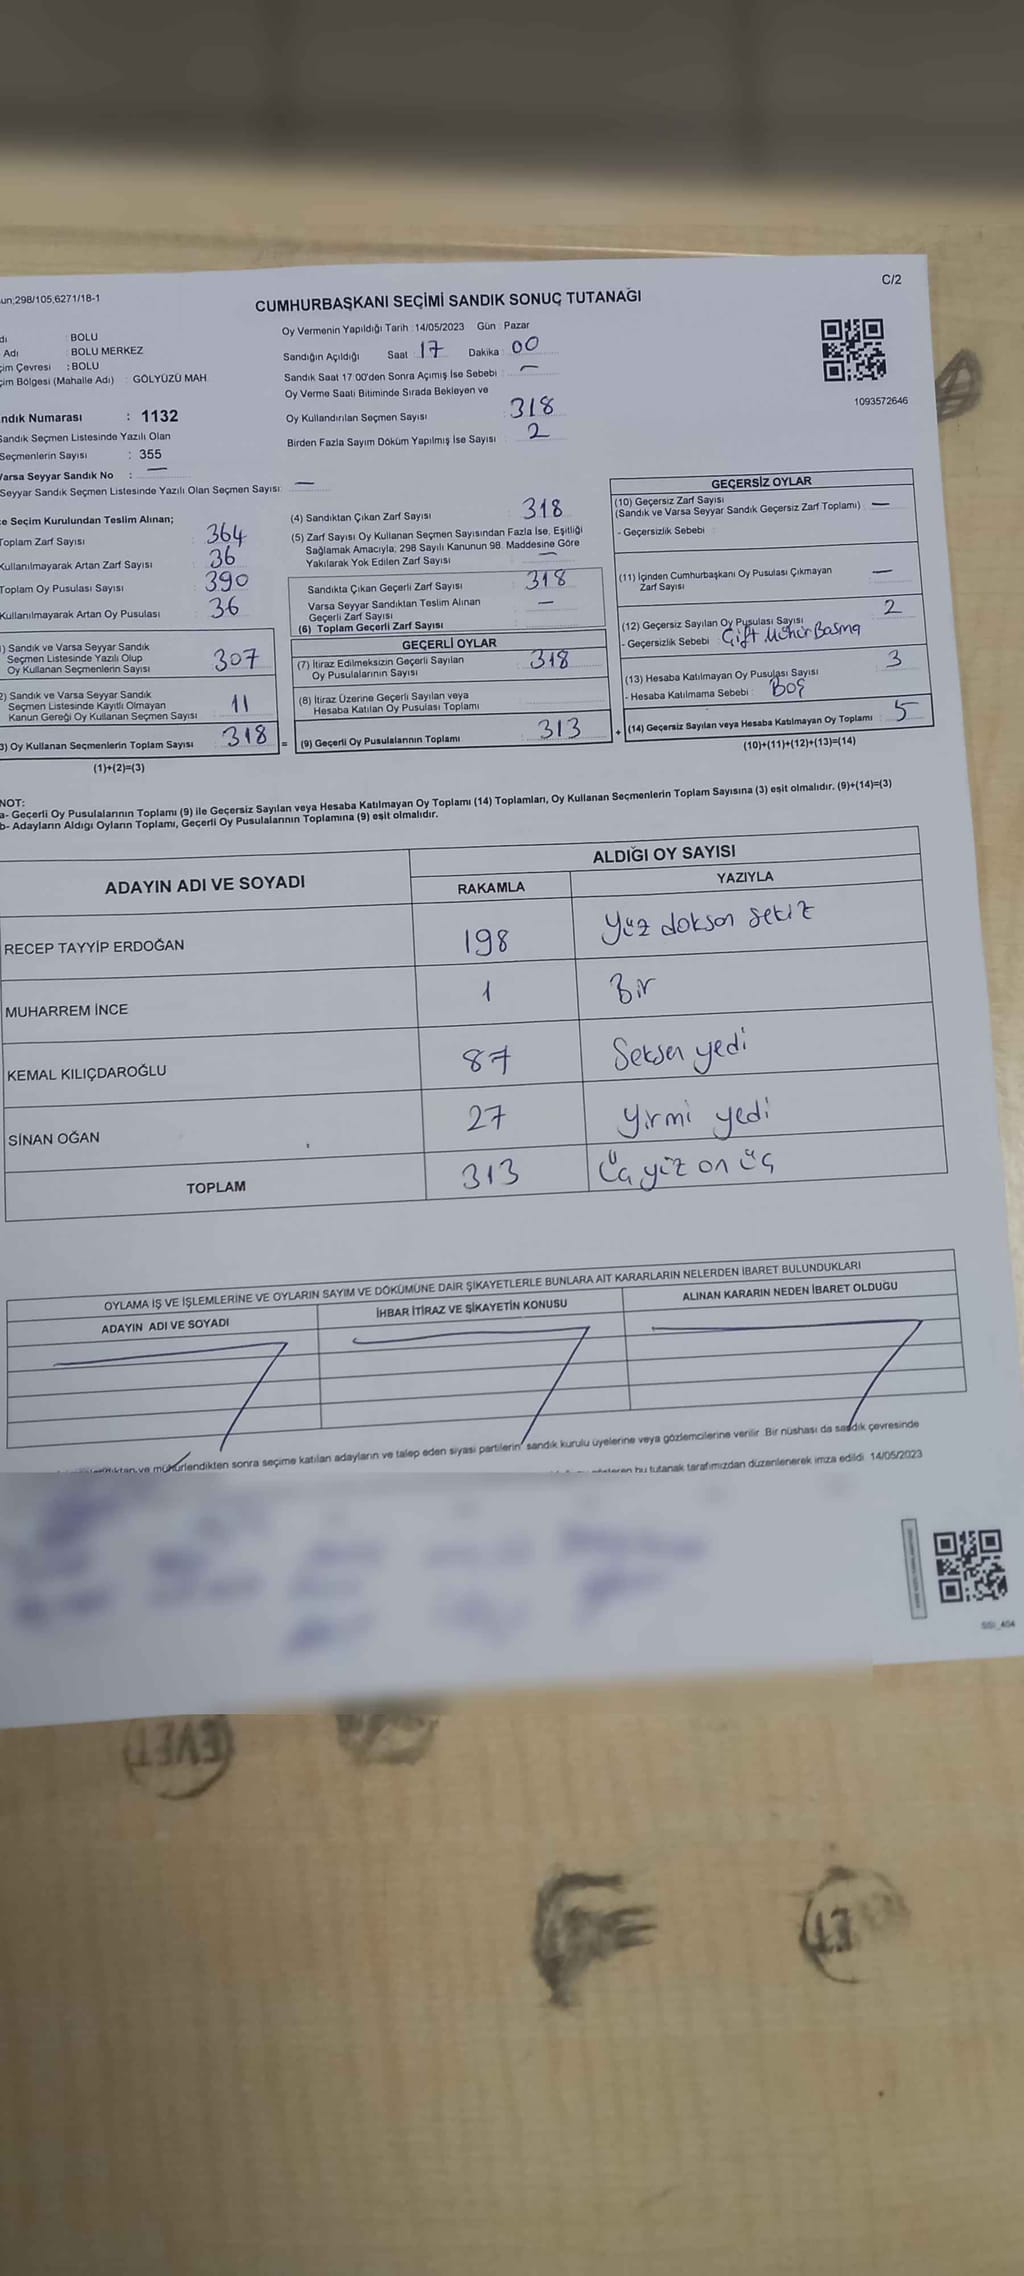 un;298/105,6271/18-1
C/2
CUMHURBAŞKANI SEÇİMİ SANDIK SONUÇ TUTANAĞI
dı : BOLU
Adı : BOLU MERKEZ
çim Çevresi : BOLU
çim Bölgesi (Mahalle Adı) : GÖLYÜZÜ MAH
ndık Numarası : 1132
Sandık Seçmen Listesinde Yazılı Olan
Seçmenlerin Sayısı : 355
Varsa Seyyar Sandık No : —
Seyyar Sandık Seçmen Listesinde Yazılı Olan Seçmen Sayısı: —
Oy Vermenin Yapıldığı Tarih : 14/05/2023 Gün : Pazar
Sandığın Açıldığı Saat : 17 Dakika : 00
Sandık Saat 17:00'den Sonra Açımış İse Sebebi : —
Oy Verme Saati Bitiminde Sırada Bekleyen ve
Oy Kullandırılan Seçmen Sayısı : 318
Birden Fazla Sayım Döküm Yapılmış İse Sayısı : 2
1093572646
e Seçim Kurulundan Teslim Alınan;
Toplam Zarf Sayısı : 364
Kullanılmayarak Artan Zarf Sayısı : 36
Toplam Oy Pusulası Sayısı : 390
Kullanılmayarak Artan Oy Pusulası : 36
) Sandık ve Varsa Seyyar Sandık
Seçmen Listesinde Yazılı Olup
Oy Kullanan Seçmenlerin Sayısı 307
2) Sandık ve Varsa Seyyar Sandık
Seçmen Listesinde Kayıtlı Olmayan
Kanun Gereği Oy Kullanan Seçmen Sayısı 11
3) Oy Kullanan Seçmenlerin Toplam Sayısı 318
(1)+(2)=(3)
(4) Sandıktan Çıkan Zarf Sayısı : 318
(5) Zarf Sayısı Oy Kullanan Seçmen Sayısından Fazla İse, Eşitliği
Sağlamak Amacıyla; 298 Sayılı Kanunun 98. Maddesine Göre
Yakılarak Yok Edilen Zarf Sayısı —
Sandıkta Çıkan Geçerli Zarf Sayısı : 318
Varsa Seyyar Sandıktan Teslim Alınan
Geçerli Zarf Sayısı : —
(6) Toplam Geçerli Zarf Sayısı :
GEÇERLİ OYLAR
(7) İtiraz Edilmeksizin Geçerli Sayılan
Oy Pusulalarının Sayısı : 318
(8) İtiraz Üzerine Geçerli Sayılan veya
Hesaba Katılan Oy Pusulası Toplamı
= (9) Geçerli Oy Pusulalarının Toplamı : 313
GEÇERSİZ OYLAR
(10) Geçersiz Zarf Sayısı
(Sandık ve Varsa Seyyar Sandık Geçersiz Zarf Toplamı) : —
- Geçersizlik Sebebi :
(11) İçinden Cumhurbaşkanı Oy Pusulası Çıkmayan
Zarf Sayısı : —
(12) Geçersiz Sayılan Oy Pusulası Sayısı : 2
- Geçersizlik Sebebi : Çift Mühür Basma
(13) Hesaba Katılmayan Oy Pusulası Sayısı : 3
- Hesaba Katılmama Sebebi : Boş
+ (14) Geçersiz Sayılan veya Hesaba Katılmayan Oy Toplamı : 5
(10)+(11)+(12)+(13)=(14)
NOT:
a- Geçerli Oy Pusulalarının Toplamı (9) ile Geçersiz Sayılan veya Hesaba Katılmayan Oy Toplamı (14) Toplamları, Oy Kullanan Seçmenlerin Toplam Sayısına (3) eşit olmalıdır. (9)+(14)=(3)
b- Adayların Aldığı Oyların Toplamı, Geçerli Oy Pusulalarının Toplamına (9) eşit olmalıdır.
ADAYIN ADI VE SOYADI
ALDIĞI OY SAYISI
RAKAMLA YAZIYLA
RECEP TAYYİP ERDOĞAN 198 Yüz doksan sekiz
MUHARREM İNCE 1 Bir
KEMAL KILIÇDAROĞLU 87 Seksen yedi
SİNAN OĞAN 27 Yirmi yedi
TOPLAM 313 Üç yüz on üç
OYLAMA İŞ VE İŞLEMLERİNE VE OYLARIN SAYIM VE DÖKÜMÜNE DAİR ŞİKAYETLERLE BUNLARA AİT KARARLARIN NELERDEN İBARET BULUNDUKLARI
ADAYIN ADI VE SOYADI İHBAR İTİRAZ VE ŞİKAYETİN KONUSU ALINAN KARARIN NEDEN İBARET OLDUĞU
ve mühürlendikten sonra seçime katılan adayların ve talep eden siyasi partilerin sandık kurulu üyelerine veya gözlemcilerine verilir. Bir nüshası da sandık çevresinde
bu tutanak tarafımızdan düzenlenerek imza edildi. 14/05/2023
EVET